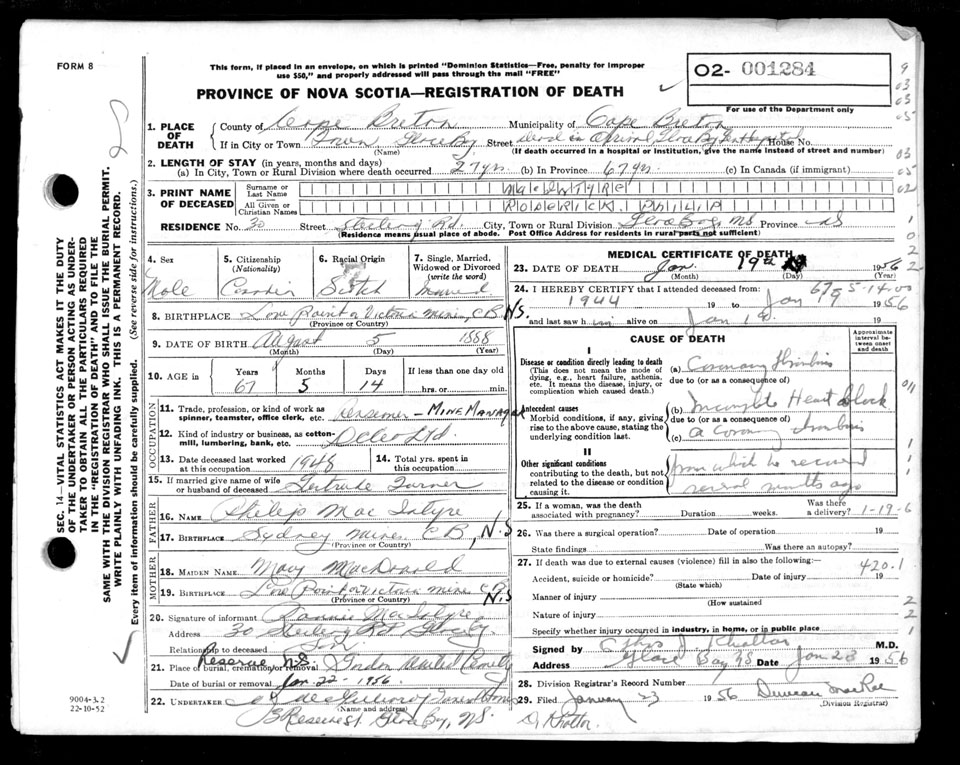 FORM 8
This form, if placed in an envelope, on which is printed "Dominion Statistics—Free, penalty for improper
use $50," and properly addressed will pass through the mail "FREE"
02- 001284
PROVINCE OF NOVA SCOTIA—REGISTRATION OF DEATH
For use of the Department only
1. PLACE OF DEATH { County of Cape Breton Municipality of Cape Breton
If in City or Town Town Glace Bay Street House No.
(Name) (If death occurred in a hospital or institution, give the name instead of street and number)
2. LENGTH OF STAY (in years, months and days)
(a) In City, Town or Rural Division where death occurred 27 yrs. (b) in Province 67 yrs. (c) in Canada (if immigrant)
3. PRINT NAME OF DECEASED { Surname or Last Name MacINTYRE
All Given or Christian Names RODERICK PHILIP
RESIDENCE No. 30 Street Sterling Rd. City, Town or Rural Division Glace Bay, NS Province NS
(Residence means usual place of abode. Post Office Address for residents in rural parts not sufficient)
4. Sex Male
5. Citizenship (Nationality)
6. Racial Origin Scotch
7. Single, Married, Widowed or Divorced (write the word) Married
8. BIRTHPLACE or Victoria Mines, C.B. N.S.
(Province or Country)
9. DATE OF BIRTH August 5 1888
(Month) (Day) (Year)
10. AGE in Years 67 Months 5 Days 14 If less than one day old hrs. or min.
OCCUPATION
11. Trade, profession, or kind of work as spinner, teamster, office clerk, etc. - MINE MANAGER
12. Kind of industry or business, as cotton-mill, lumbering, bank, etc. Ltd.
13. Date deceased last worked at this occupation 1948
14. Total yrs. spent in this occupation
15. If married give name of wife or husband of deceased Gertrude Turner
FATHER
16. NAME Philip MacIntyre
17. BIRTHPLACE Sydney Mines C.B., N.S
(Province or Country)
MOTHER
18. MAIDEN NAME Mary MacDonald
19. BIRTHPLACE or Victoria Mine C.B. N.S
(Province or Country)
20. Signature of informant MacIntyre
Address 30 Sterling Rd Gl. Bay.
Relationship to deceased Son
21. Place of burial, cremation or removal Reserve N.S.
Date of burial or removal Jan-22-1956.
22. UNDERTAKER
(Name and address)
Reserve St. Glace Bay, N.S.
MEDICAL CERTIFICATE OF DEATH
23. DATE OF DEATH Jan. 19th 1956
(Day) (Year)
24. I HEREBY CERTIFY that I attended deceased from:
1944 19 to Jan 19 1956
and last saw him alive on Jan 19 19
CAUSE OF DEATH
Approximate interval between onset and death
I
Disease or condition directly leading to death
(This does not mean the mode of dying, e.g., heart failure, asthenia, etc. It means the disease, injury, or complication which caused death.)
(a) Coronary Thrombosis
due to (or as a consequence of)
Antecedent causes
Morbid conditions, if any, giving rise to the above cause, stating the underlying condition last.
(b) Heart Block
due to (or as a consequence of)
(c) a coronary thrombosis
II
Other significant conditions
contributing to the death, but not related to the disease or condition causing it.
from which he recovered
several months ago
25. If a woman, was the death associated with pregnancy? Duration weeks. Was there a delivery? 1-19-6
26. Was there a surgical operation? Date of operation 19
State findings Was there an autopsy?
27. If death was due to external causes (violence) fill in also the following: 420.1
Accident, suicide or homicide? Date of injury 19
(State which)
Manner of injury
(How sustained
Nature of injury
Specify whether injury occurred in industry, in home, or in public place
Signed by M.D.
Address Glace Bay NS Date Jan 23 1956
28. Division Registrar's Record Number
29. Filed January 23 1956 Duncan MacRae
(Division Registrar)
SEC. 14—VITAL STATISTICS ACT MAKES IT THE DUTY
OF THE UNDERTAKER OR PERSON ACTING AS UNDER-
TAKER TO OBTAIN ALL THE PARTICULARS REQUIRED
IN THE "REGISTRATION OF DEATH" AND TO FILE THE
SAME WITH THE DIVISION REGISTRAR WHO SHALL ISSUE THE BURIAL PERMIT.
WRITE PLAINLY WITH UNFADING INK. THIS IS A PERMANENT RECORD.
Every item of information should be carefully supplied. (See reverse side for instructions.)
9004-3.2
22-10-52